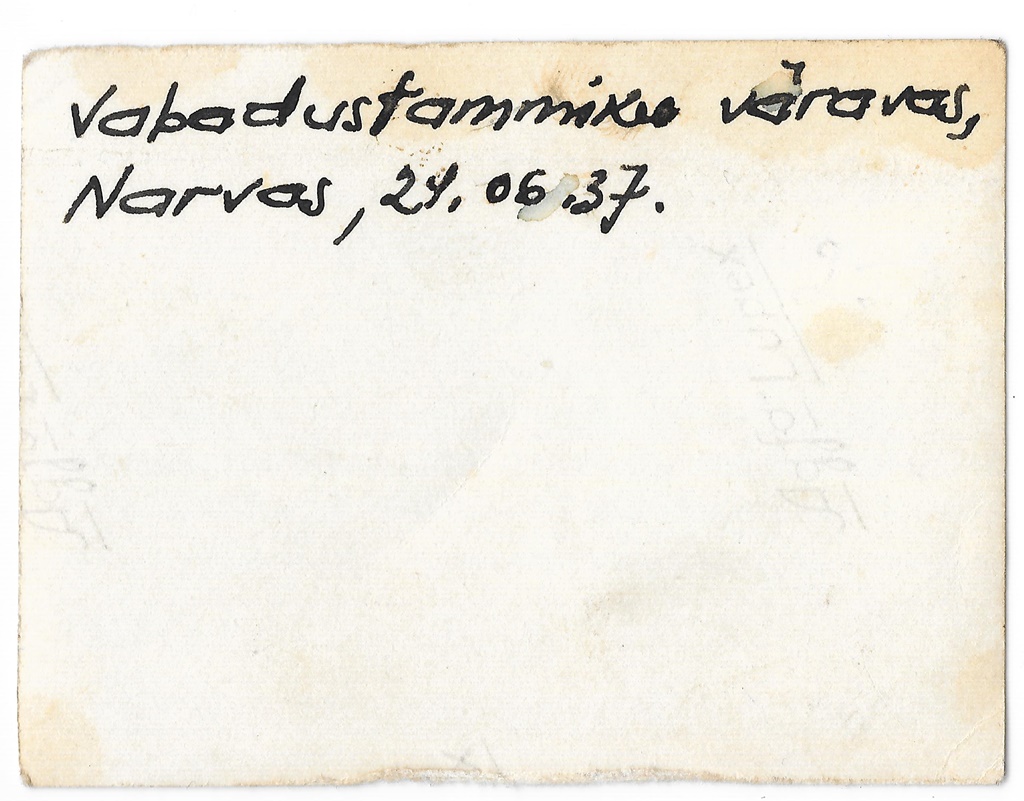 Vabadustammiku väravas,
Narvas, 24.06.37.